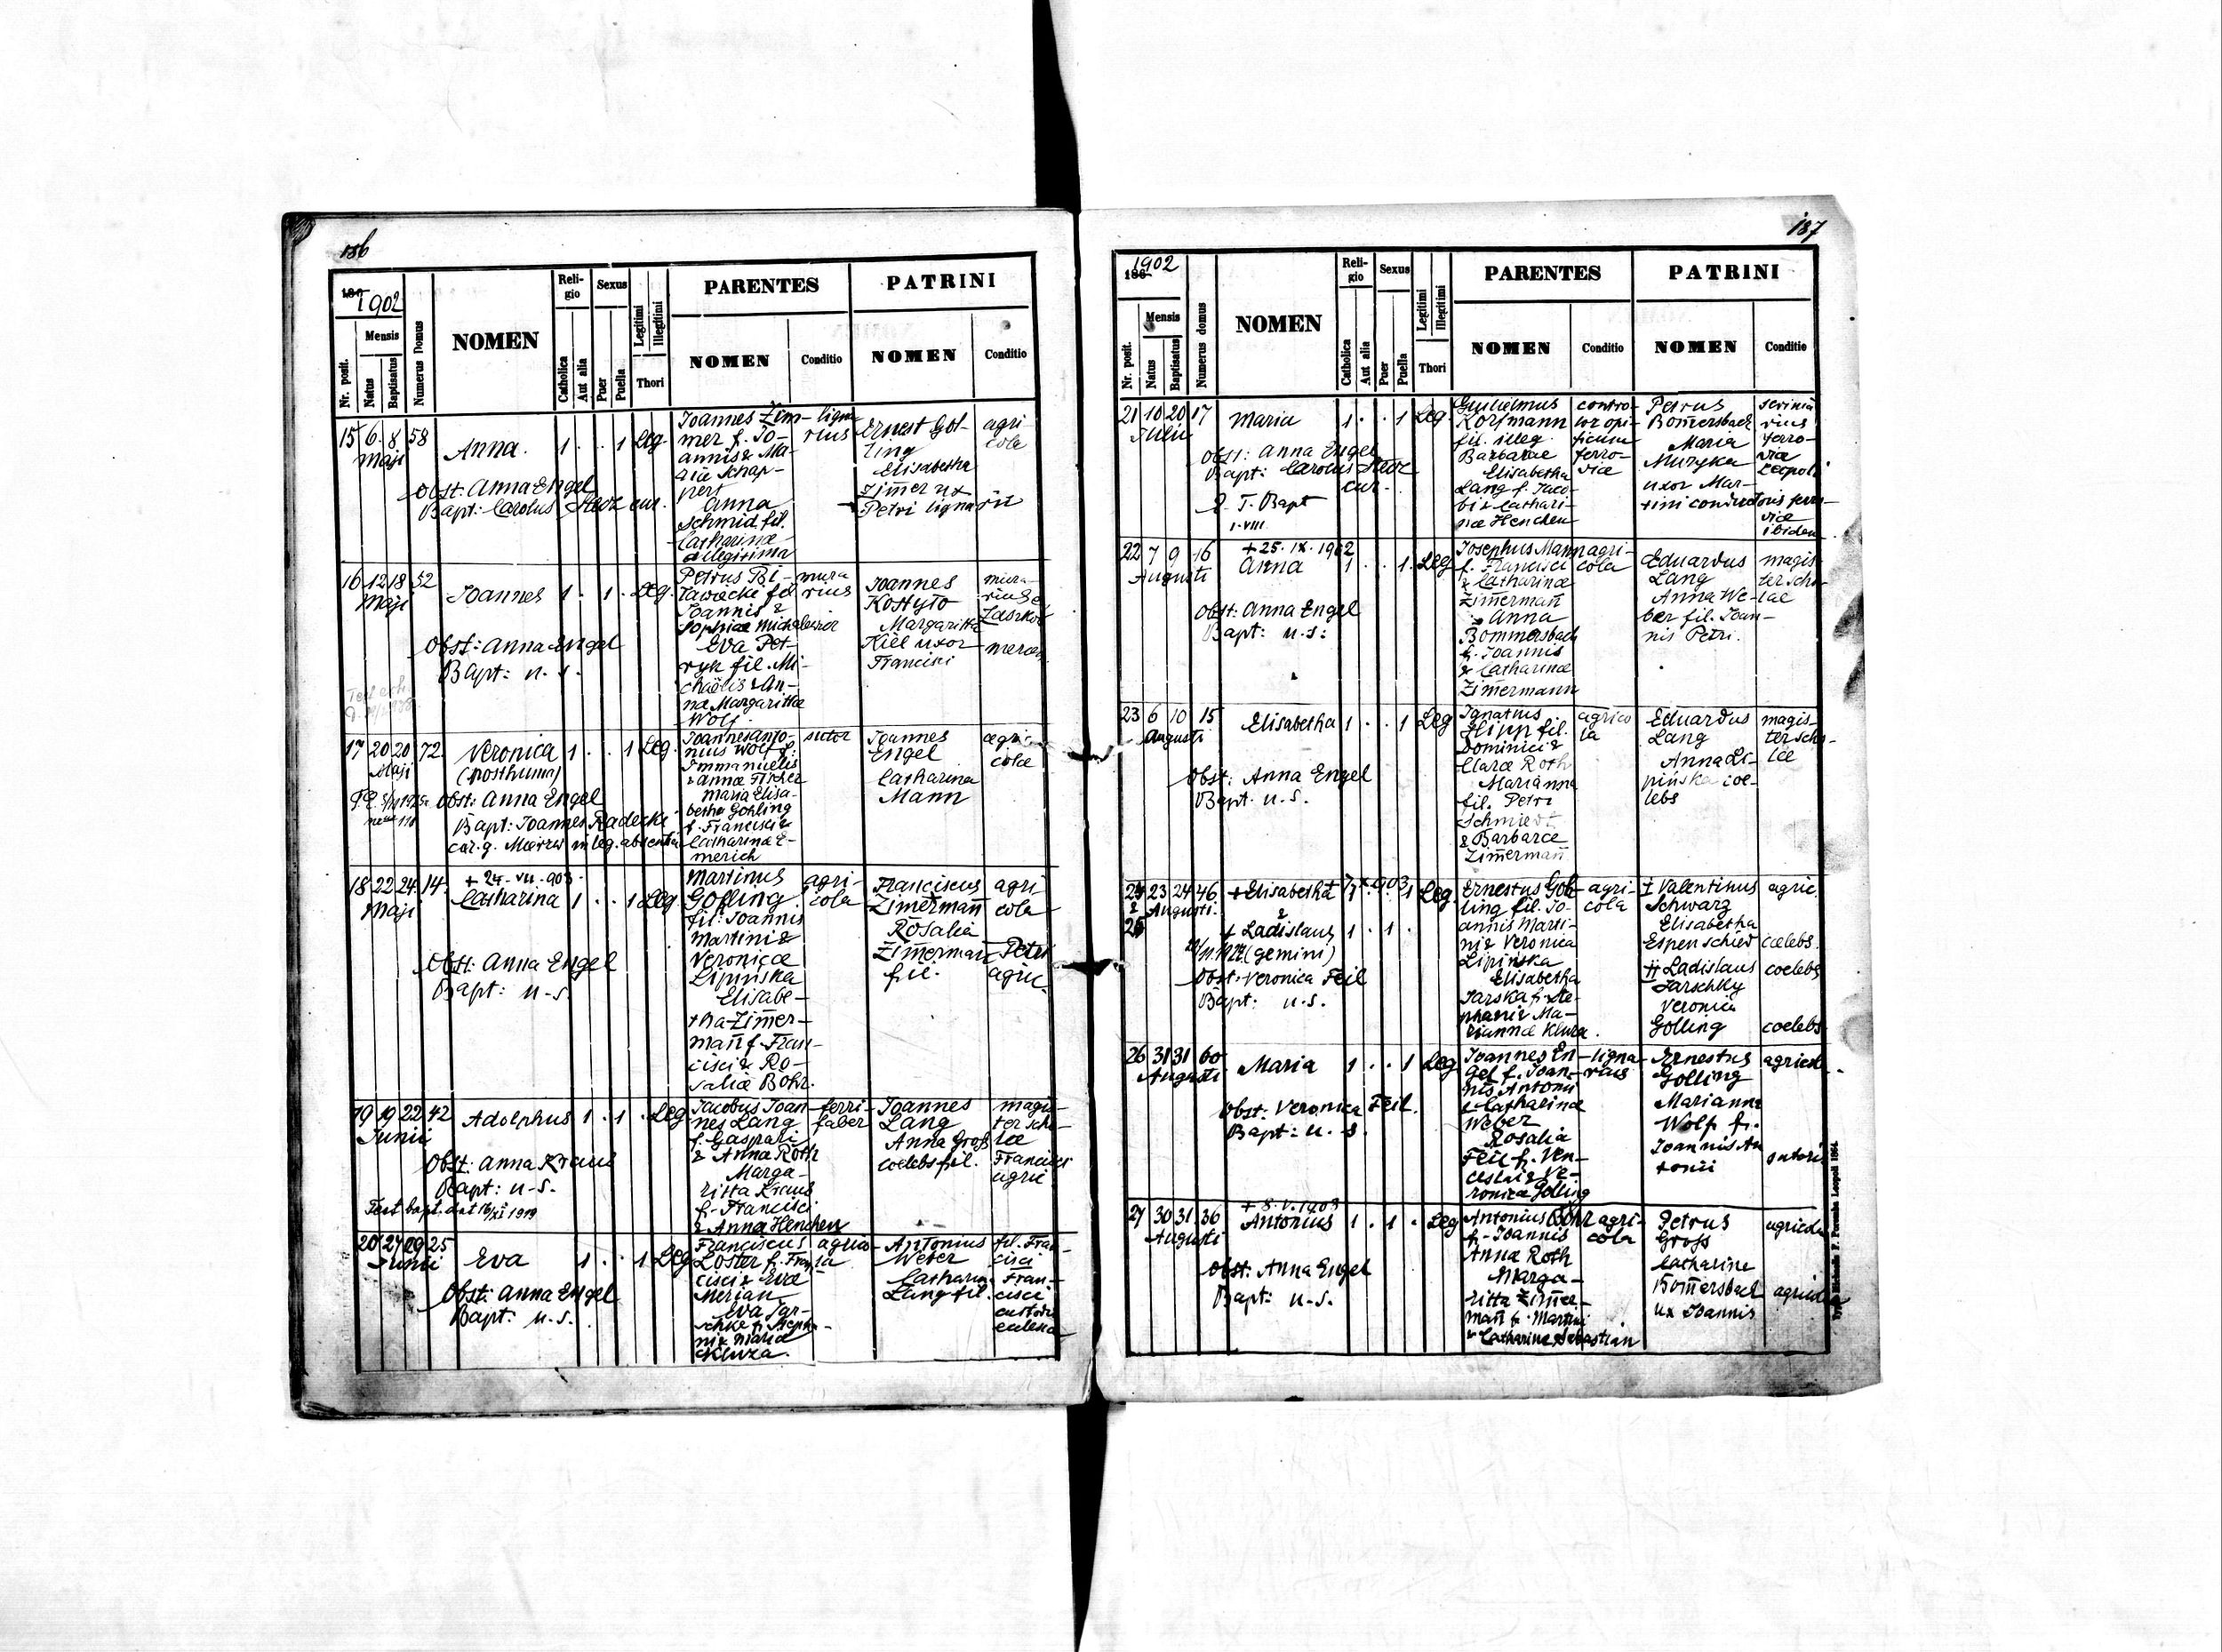 186
1902
Nr. posit.
Mensis
Natus
Baptisatus
Numerus Domus
NOMEN
Religio
Catholica
Aut alia
Sexus
Puer
Puella
Legitimi
Illegitimi
Thori
PARENTES
NOMEN
Conditio
PATRINI
NOMEN
Conditio
15 6 8 58 Anna. 1 . . 1 Leg.
Maji
Obst: Anna Engel
Bapt: Carolus cur.
Joannes Zim-
mer f. Jo-
annis & Ma-
riæ Schap-
pert
Anna
Schmid fil.
Catharinæ
illegitima
ligna
rius
Ernest Gol-
ling
Elisabetha
Zim̄er ux
Petri lignarii
agri
cola
16 12 18 52 Joannes 1 . 1 . Leg.
Maji
Obst: Anna Engel
Bapt: u. s.
Petrus Bi-
ławecki fil
Joannis &
Sophiæ
Eva Pet-
ryk fil. Mi-
chaëlis & An-
næ Margarittæ
Wolf.
mura
rius
Joannes
Kostyło
Margaritta
Kiel uxor
Francisci
mura-
rius e
17 20 20 72 Veronica 1 . . 1 Leg.
Maji
(posthuma)
Obst: Anna Engel
Bapt: Joannes Radecki
Joannes Anto-
nius Wolf f.
Emmanuelis
& Annæ Fischer
Maria Elisa-
betha Gohling
f. Francisci &
Catharinæ E-
merich
sutor
Joannes
Engel
Catharina
Mann
agri-
cola
18 22 24 14 + 24. VII. 903.
Catharina 1 . . 1 Leg.
Maji
Obst: Anna Engel
Bapt: u. s.
Martinus
Golling
fil: Joannis
Martini &
Veronicæ
Lipińska
Elisabe-
tha Zim̄er-
man̄ f. Fran-
cisci & Ro-
saliæ Bohr.
agri-
cola
Franciscus
Zim̄erman̄
Rosalia
Zim̄erman̄ Petri
fil.
agri
cola
agric.
19 19 22 42 Adolphus 1 . 1 . Leg.
Junii
Obst: Anna Kraus
Bapt: u. s.
Test bapt. dat 16/XI 1919
Jacobus Joan-
nes Lang
f. Gaspari
& Annæ Roth
Marga-
ritta Kraus
f. Francisci
& Annæ Henchen
ferri-
faber
Joannes
Lang
Anna Groß
coelebs fil.
magis-
ter scho-
læ
Francisci
agric
20 27 29 25 Eva 1 . . 1 Leg
Junii
Obst: Anna Engel
Bapt: u. s.
Franciscus
Loster f. Fran-
cisci & Evæ
Merian
Eva Jar-
schke f. Stepha-
ni & Mariæ
Kluza.
agrico-
la
Antonius
Weber
Catharina
Lang fil.
fil. Fran-
cisci
Fran-
cisci
custodis
187
1902
Nr. posit.
Mensis
Natus
Baptisatus
Numerus domus
NOMEN
Religio
Catholica
Aut alia
Sexus
Puer
Puella
Legitimi
Illegitimi
Thori
PARENTES
NOMEN
Conditio
PATRINI
NOMEN
Conditio
21 10 20 17 Maria 1 . . 1 Leg.
Julii
Obst: Anna Engel
Bapt: Carolus
cur.
Guilielmus
Korfmann
fil. illeg.
Barbaræ
Elisabetha
Lang f. Jaco-
bi & Cathari-
næ Henchen
contro-
lor opi-
ficum
ferro-
viæ
Petrus
Bom̄ersbach
Maria
Muzyka
uxor Mar-
tini conductoris ferro-
viæ
ibidem
scrinia
rius
ferro-
viæ
Leopoli
22 7 9 16 + 25. IX. 1902
Anna 1 . . 1 Leg
Augusti
Obst: Anna Engel
Bapt: u. s:
Josephus Mann
f. Francisci
& Catharinæ
Zim̄erman̄
Anna
Bommersbach
f. Joannis
& Catharinæ
Zim̄ermann
agri-
cola
Eduardus
Lang
Anna We-
ber fil. Joan-
nis Petri.
magis-
ter scho-
læ
23 6 10 15 Elisabetha 1 . . 1 Leg
Augusti
Obst: Anna Engel
Bapt. u. s.
Ignatius
Hipp fil.
Dominici &
Claræ Roth
Marianna
fil. Petri
Schmiedt
& Barbaræ
Zim̄erman̄
agrico
la
Eduardus
Lang
Anna Li-
pińska coe-
lebs
magis-
ter scho-
læ
24 23 24 46 + Elisabetha 1 Leg.
&
25
Augusti.
&
+ Ladislaus 1 . 1 .
(gemini)
Obst: Veronica Feil
Bapt: u. s.
Ernestus Gol-
ling fil. Jo-
annis Marti-
ni & Veronica
Lipińska
Elisabetha
Jarska f. Ste-
phani & Ma-
riannæ Kluza.
agri-
cola
Valentinus
Schwarz
Elisabetha
Espenschied
Ladislaus
Jarschky
Veronica
Golling
agric.
cœlebs.
coelebs
coelebs
26 31 31 60 Maria 1 . . 1 Leg
Augusti
Obst: Veronica Feil.
Bapt: u. s.
Joannes En-
gel f. Joan-
nis Antonii
& Catharinæ
Weber
Rosalia
Feil f. Ven-
ceslai & Ve-
ronicæ Golling
ligna-
rius
Ernestus
Golling
Marianna
Wolf f.
Joannis An
tonii
agricola
sutoris
27 30 31 36 + 8. V. 1903
Antonius 1 . 1 . Leg
Augusti
Obst: Anna Engel
Bapt: u. s.
Antonius Bohr
f. Joannis
Annæ Roth
Marga-
ritta Zim̄er-
man̄ f. Martini
& Catharinæ Sebastian
agri-
cola
Petrus
Groß
Catharine
Bom̄ersbach
ux Joannis
agricola